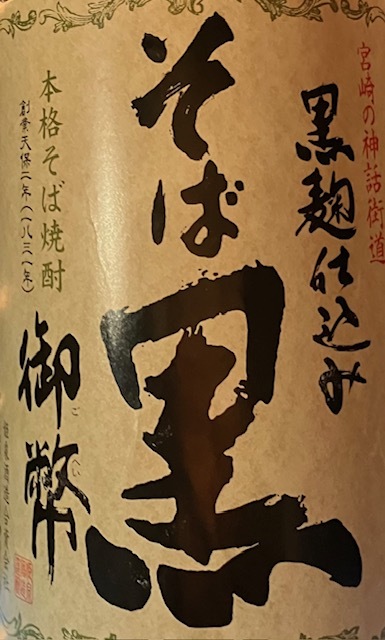 宮崎の神話街道
黒麹仕込み
そば黒
本格そば焼酎
創業天保二年(一八三一年)
御幣
ごへい